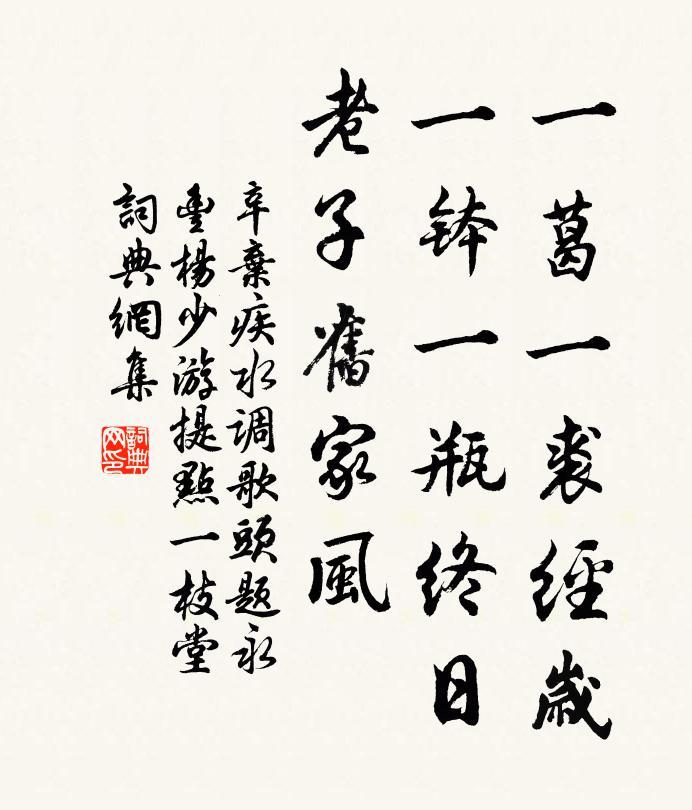 一葛一裘經歲
一缽一瓶終日
老子舊家風
辛棄疾水调歌頭题永
豐楊少游提點一枝堂
詞典網集
詞典
网印